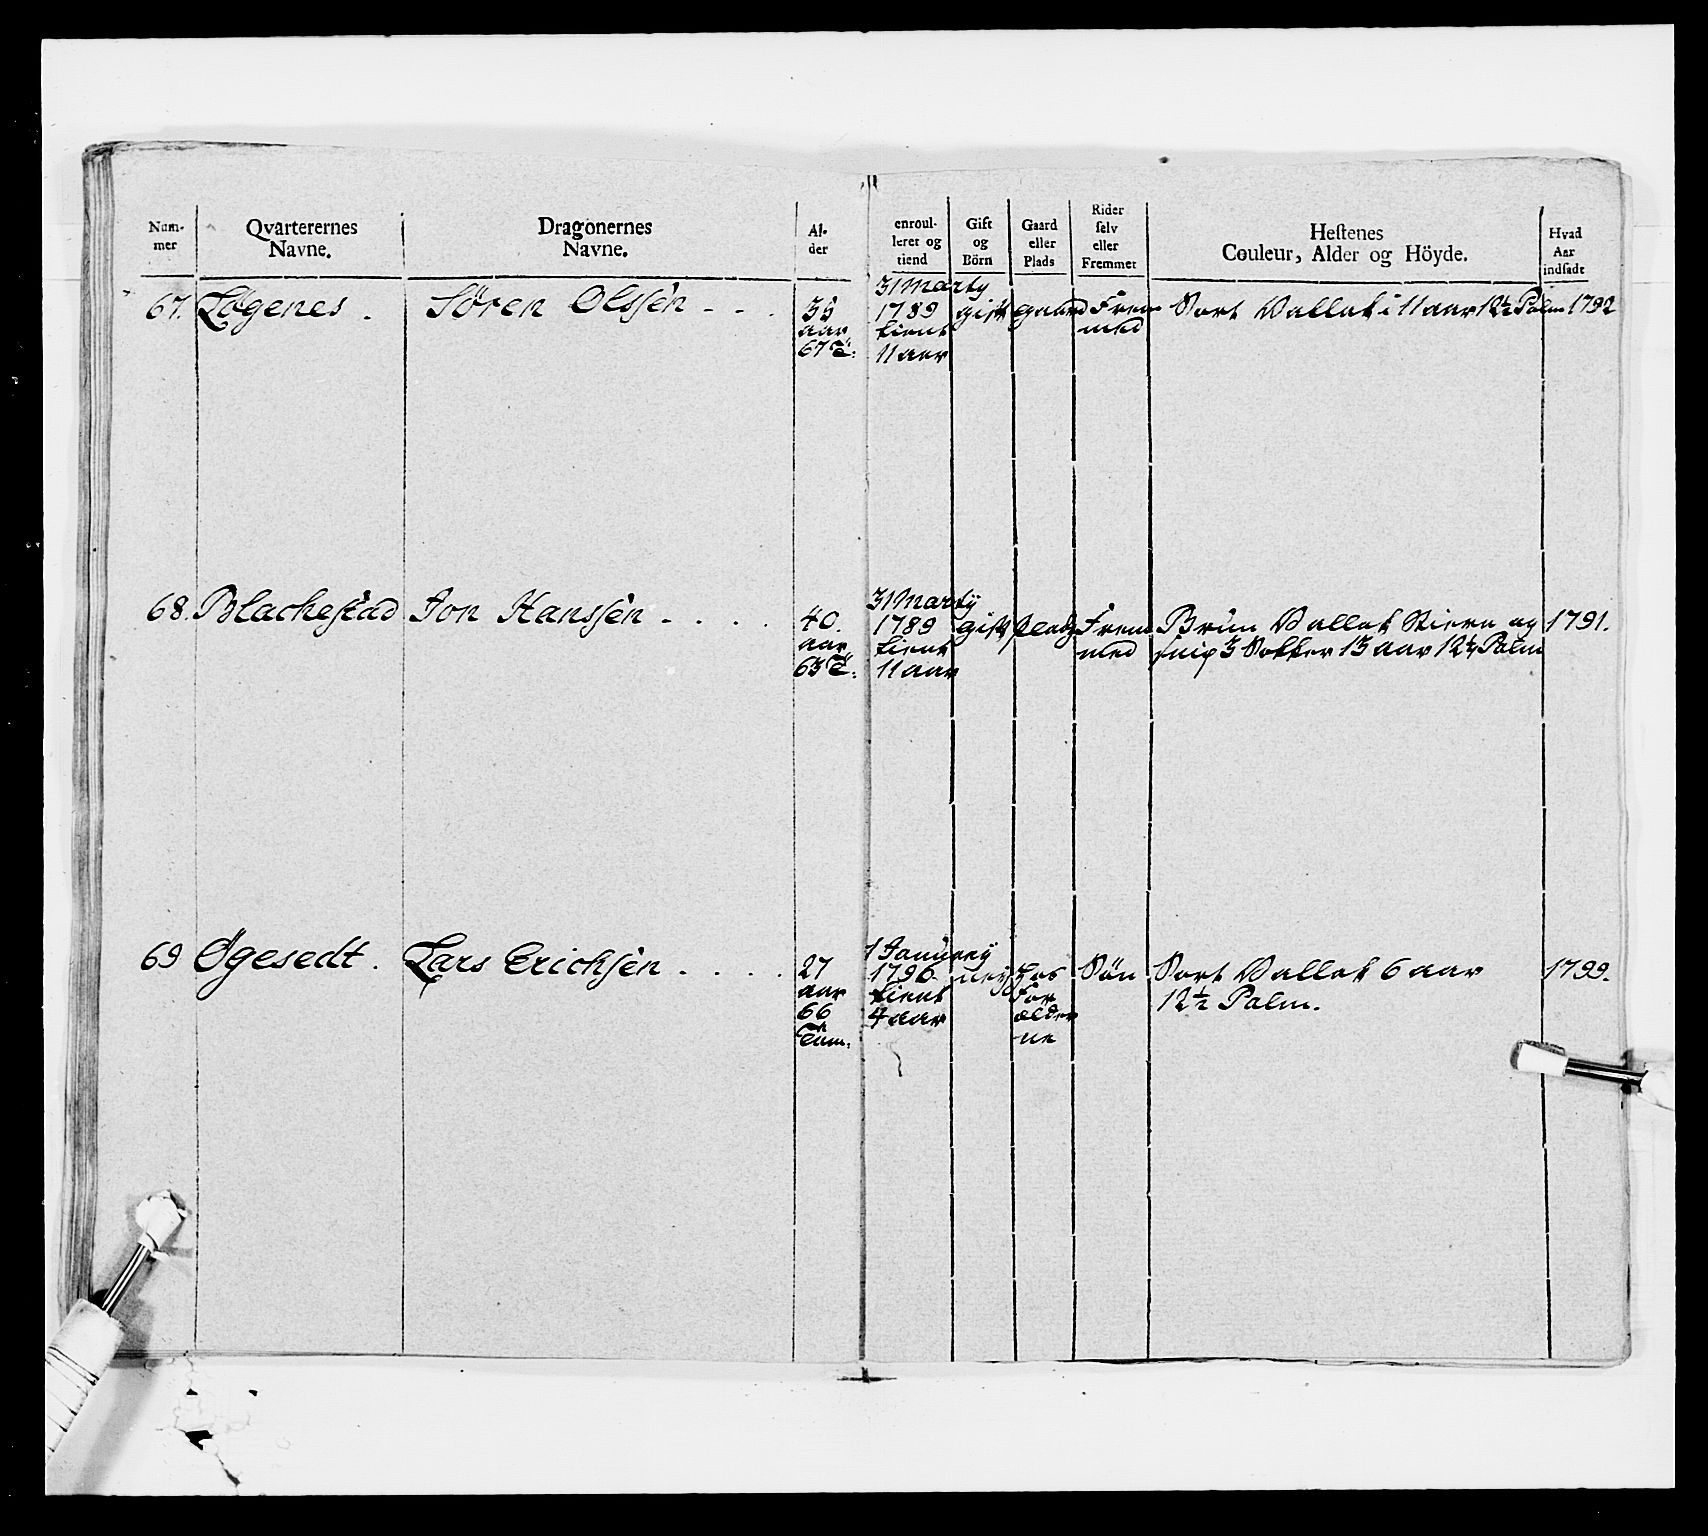 Num-
mer
Qvarterernes
Navne.
Dragonernes
Navne.
Al-
der
enroul-
leret og
tiend
Gift
og
Börn
Gaard
eller
Plads
Rider
selv
eller
Fremmet
Hestenes
Couleur, Alder og Höyde.
Hvad
Aar
indsadt
67. Løgenes. Søren Olssen - - .
aar
67 T:
31 Marty
1789
tient
11 aar
gift
gaard
Frem
med
Sort Vallak i 11 aar 12½ Palm 1792
68. Blachestad Jon Hanssen - . . .
40.
aar
63 T:
31 Marty
1789
tient
11 aar
gift
plads
Frem
med
Brun Vallak Stiern og 1791.
snip 3 Sokker 13 aar Palm
69 Øgesedt. Lars Erichsen . . . .
27
aar
66
Tom:
1 January
1796.
tient
4 aar
ney
hos
For
ælder
ne
Søn
Sort Vallak 6 aar 1799.
12½ Palm.